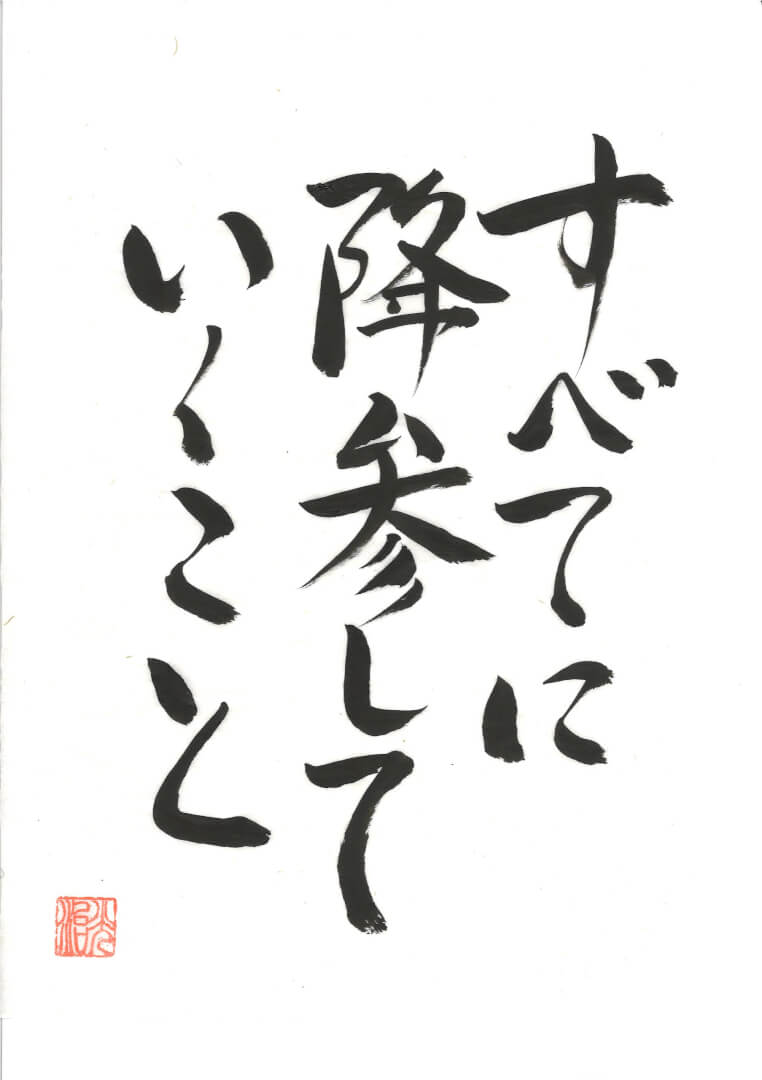 すべてに
降参して
いくこと